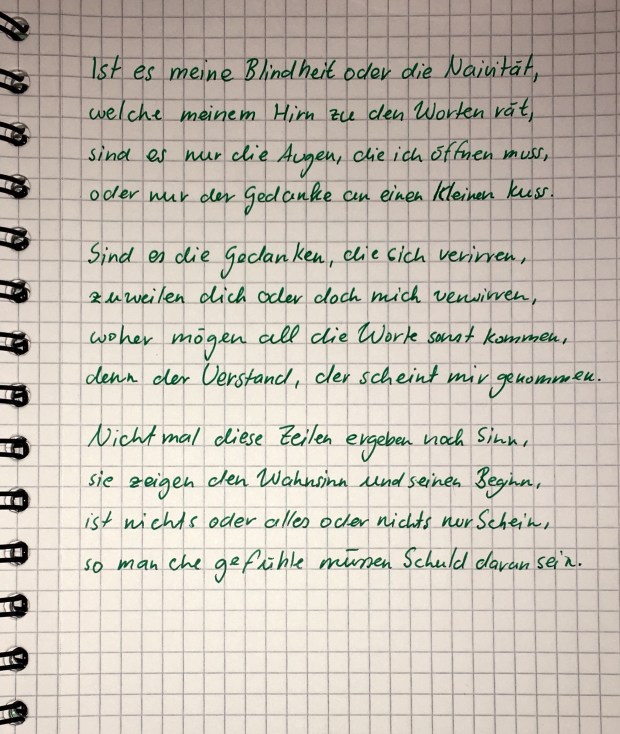 Ist es meine Blindheit oder die Naivität,
welche meinem Hirn zu den Worten rät,
sind es nur die Augen, die ich öffnen muss,
oder nur der Gedanke an einen kleinen Kuss.
Sind es die Gedanken, die sich verirren,
zuweilen dich oder doch mich verwirren,
woher mögen all die Worte sonst kommen,
denn der Verstand, der scheint mir genommen.
Nicht mal diese Zeilen ergeben noch Sinn,
sie zeigen den Wahnsinn und seinen Beginn,
ist nichts oder alles oder nichts nur Schein,
so man che gefühle müssen Schuld daran sein.